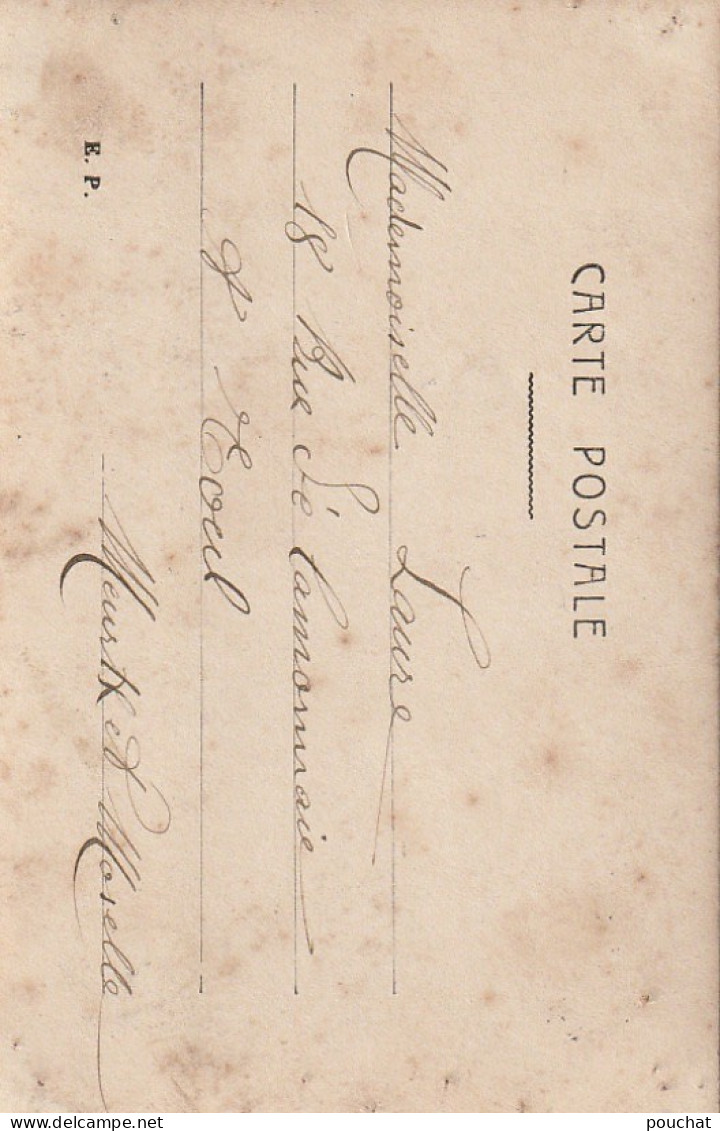 CARTE POSTALE
Mademoiselle Laure
18 Rue Lamonnaie
à Toul
Meurthe et Moselle
E. P.
delcampe.net
pouchat